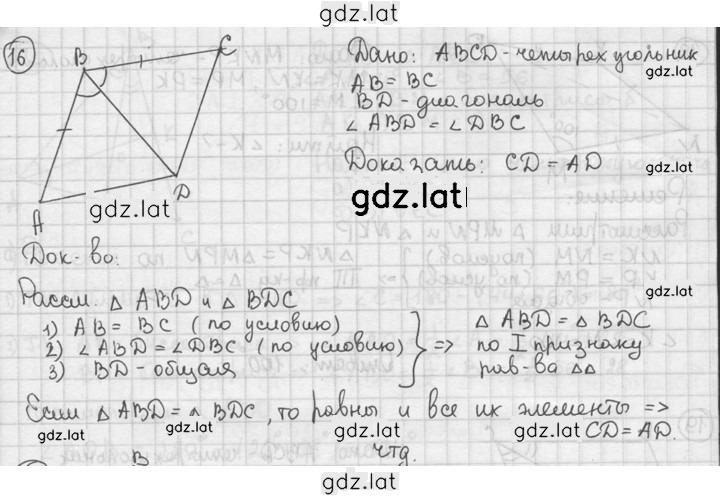 gdz.lat
16
B
C
A
D
Дано: ABCD - четырехугольник
gdz.lat
AB = BC
BD - диагональ
∠ ABD = ∠ DBC
Доказать: CD = AD
gdz.lat
gdz.lat
gdz.lat
Док-во:
Рассм. △ ABD и △ BDC
gdz.lat
1) AB = BC (по условию)
2) ∠ ABD = ∠ DBC (по условию)
3) BD - общая
=> △ ABD = △ BDC
по I признаку
gdz.lat
рав-ва △△
Если △ ABD = △ BDC, то равны и все их элементы =>
CD = AD.
gdz.lat gdz.lat gdz.lat gdz.lat
чтд.
B
gdz.lat